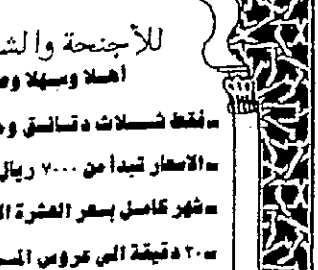 للأجنحة والشـ
أهلا وسهلا وصـ
ـ فقط ثلاث دقائق و
ـ الاسعار تبدأ من ٧٠٠٠ ريال
ـ شهر كامل بسعر العشرة ال
ـ ٢٠ دقيقة الى عروس المـ